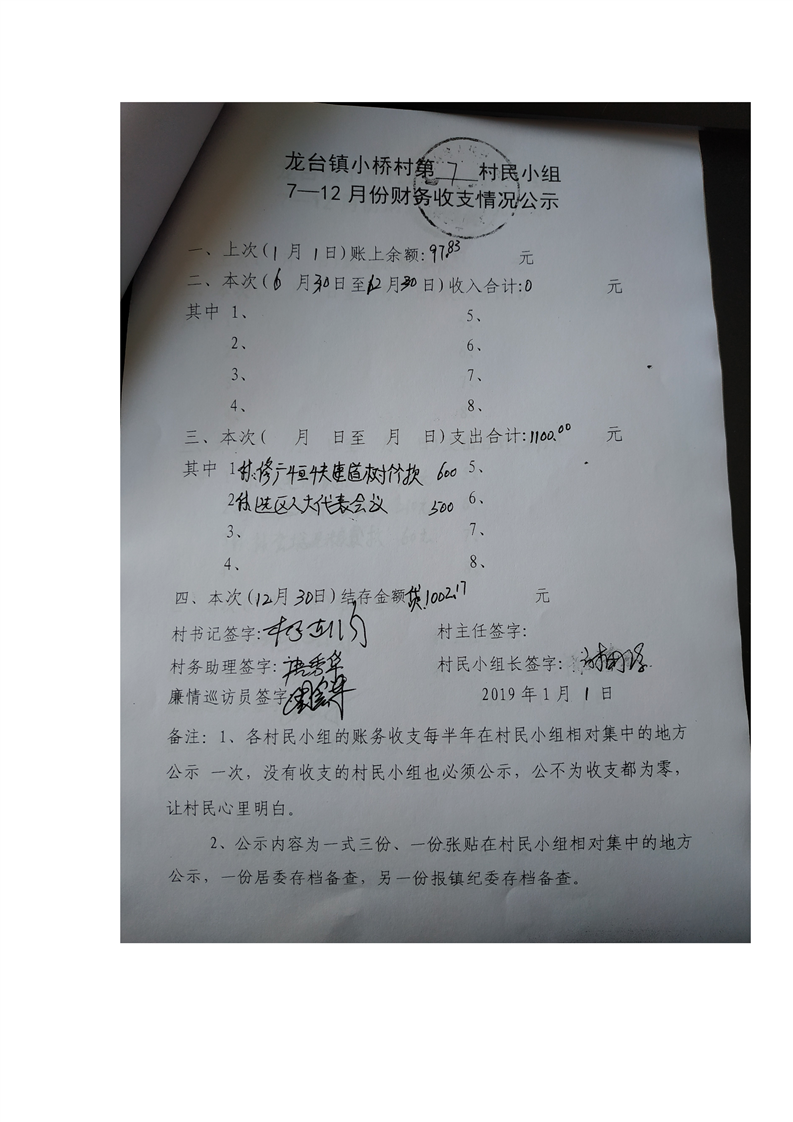 龙台镇小桥村第 7 村民小组
7—12月份财务收支情况公示
一、上次(1月1日)账上余额:97.83 元
二、本次(6月30日至12月30日)收入合计:0 元
其中 1、 5、
2、 6、
3、 7、
4、 8、
三、本次( 月 日至 月 日)支出合计:1100.00 元
其中 1 修广恒快速道树价款 600 5、
2 选区人大代表会议 500 6、
3、 7、
4、 8、
四、本次(12月30日)结存金额 1002.17 元
村书记签字: 村主任签字:
村务助理签字: 村民小组长签字:
廉情巡访员签字 2019年1月1日
备注：1、各村民小组的账务收支每半年在村民小组相对集中的地方
公示 一次，没有收支的村民小组也必须公示，公不为收支都为零，
让村民心里明白。
2、公示内容为一式三份、一份张贴在村民小组相对集中的地方
公示，一份居委存档备查，另一份报镇纪委存档备查。